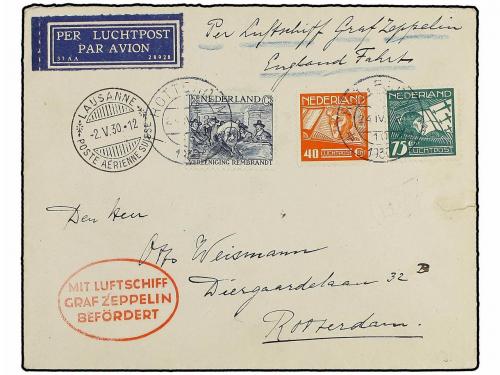 PER LUCHTPOST
PAR AVION
Per Luftschiff Graf Zeppelin
England Fahrt
LAUSANNE
-2.V.30-12
POSTE AÉRIENNE SUISSE
ROTTERD
NEDERLAND
VEREENIGING REMBRANDT
NEDERLAND
40
LUCHTPOST
NEDERLAND
75
LUCHTPOST
Den Herr
Otto Weismann
Diergaardelaan 32 B
Rotterdam.
MIT LUFTSCHIFF
GRAF ZEPPELIN
BEFÖRDERT